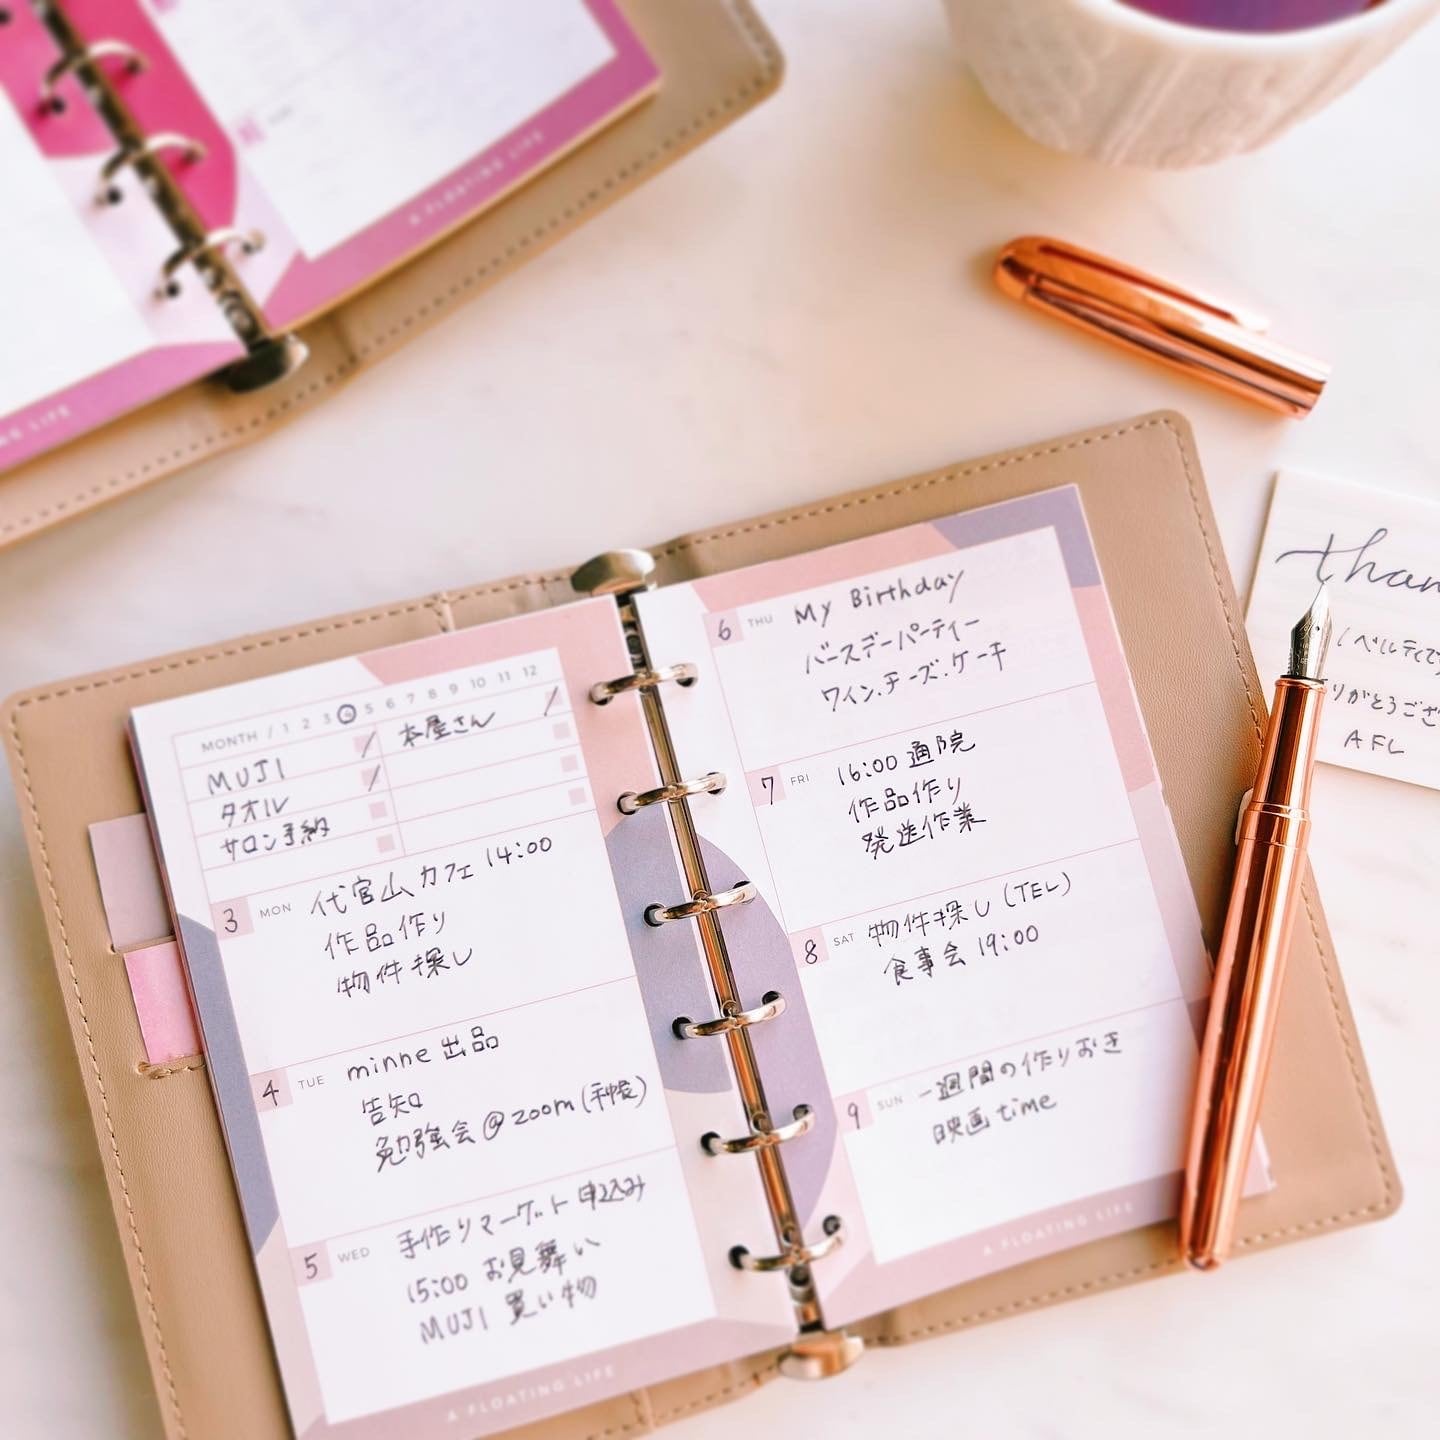 A FLOATING LIFE
MONTH / 1 2 3 4 5 6 7 8 9 10 11 12
MUJI
本屋さん
タオル
サロン予約
3 MON 代官山カフェ 14:00
作品作り
物件探し
4 TUE minne 出品
告知
勉強会@zoom
5 WED 手作りマーケット申込み
15:00 お見舞い
MUJI 買い物
A FLOATING LIFE
6 THU My Birthday
バースデーパーティー
ワイン.チーズ.ケーキ
7 FRI 16:00 通院
作品作り
発送作業
8 SAT 物件探し(TEL)
食事会 19:00
9 SUN 一週間の作りおき
映画 time
A FLOATING LIFE
AFL